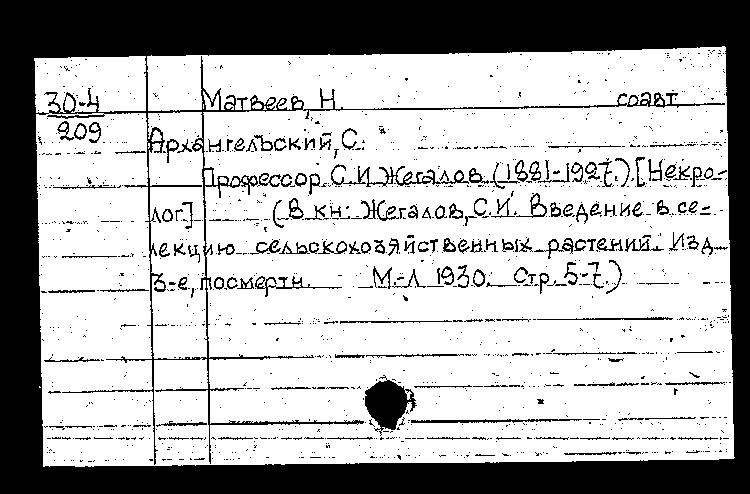 30-4 Матвеев, Н. соавт.
209
Архангельский, С.
Профессор С.И. Жегалов. (1881-1927.) [Некро-
лог.] (В кн: Жегалов, С.И. Введение в се-
лекцию сельскохозяйственных растений. Изд.
3-е, посмертн. М.-Л 1930. Стр. 5-7.)